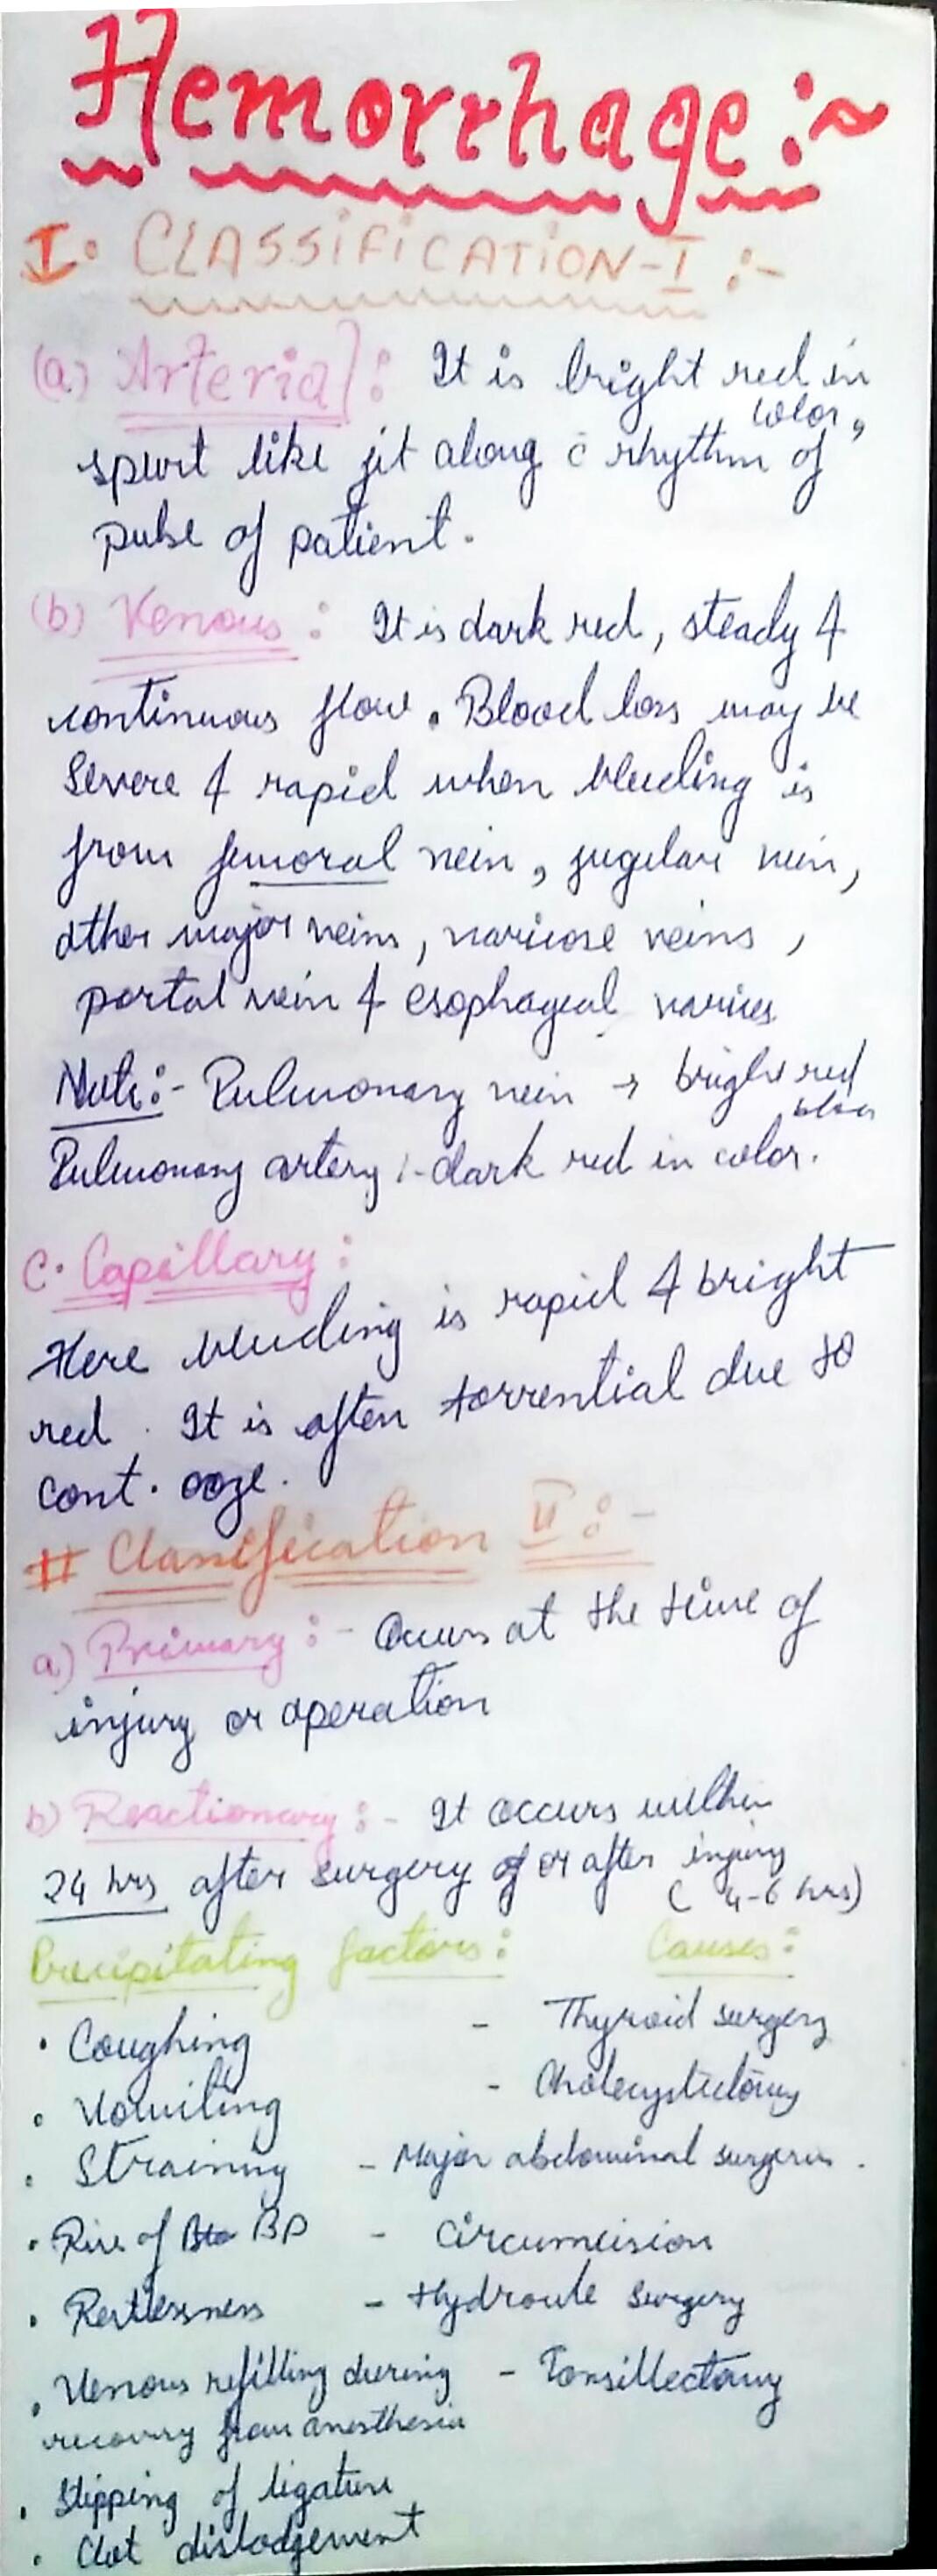 Hemorrhage :~
I. CLASSIFICATION-I :-
(a) Arterial : It is bright red in color,
spurt like jet along c̄ rhythm of
pulse of patient.
(b) Venous : It is dark red, steady &
continuous flow. Blood loss may be
Severe & rapid when bleeding is
from femoral vein, jugular vein,
other major veins, varicose veins,
portal vein & esophageal varices
Note:- Pulmonary vein → bright red color
Pulmonary artery :- dark red in color.
C. Capillary :
Here bleeding is rapid & bright
red. It is often torrential due to
cont. ooze.
# Classification II :-
a) Primary :- Occurs at the time of
injury or operation
b) Reactionary :- It occurs within
24 hrs after surgery of or after injury
(4-6 hrs)
Precipitating factors : Causes :
• Coughing - Thyroid surgery
• Vomiting - Cholecystectomy
• Straining - Major abdominal surgeries.
• Rise of BP - Circumcision
• Restlessness - Hydrocele Surgery
• Venous refilling during - Tonsillectomy
recovery from anesthesia
• Slipping of ligature
• Clot dislodgement